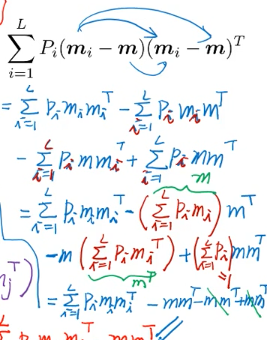 \sum_{i=1}^{L} P_i(m_i - m)(m_i - m)^T
= \sum_{i=1}^{L} P_i m_i m_i^T - \sum_{i=1}^{L} P_i m_i m^T
- \sum_{i=1}^{L} P_i m m_i^T + \sum_{i=1}^{L} P_i m m^T
m
= \sum_{i=1}^{L} P_i m_i m_i^T - (\sum_{i=1}^{L} P_i m_i) m^T
- m (\sum_{i=1}^{L} P_i m_i^T) + (\sum_{i=1}^{L} P_i) m m^T
m^T =1
= \sum_{i=1}^{L} P_i m_i m_i^T - m m^T - m m^T + m m^T